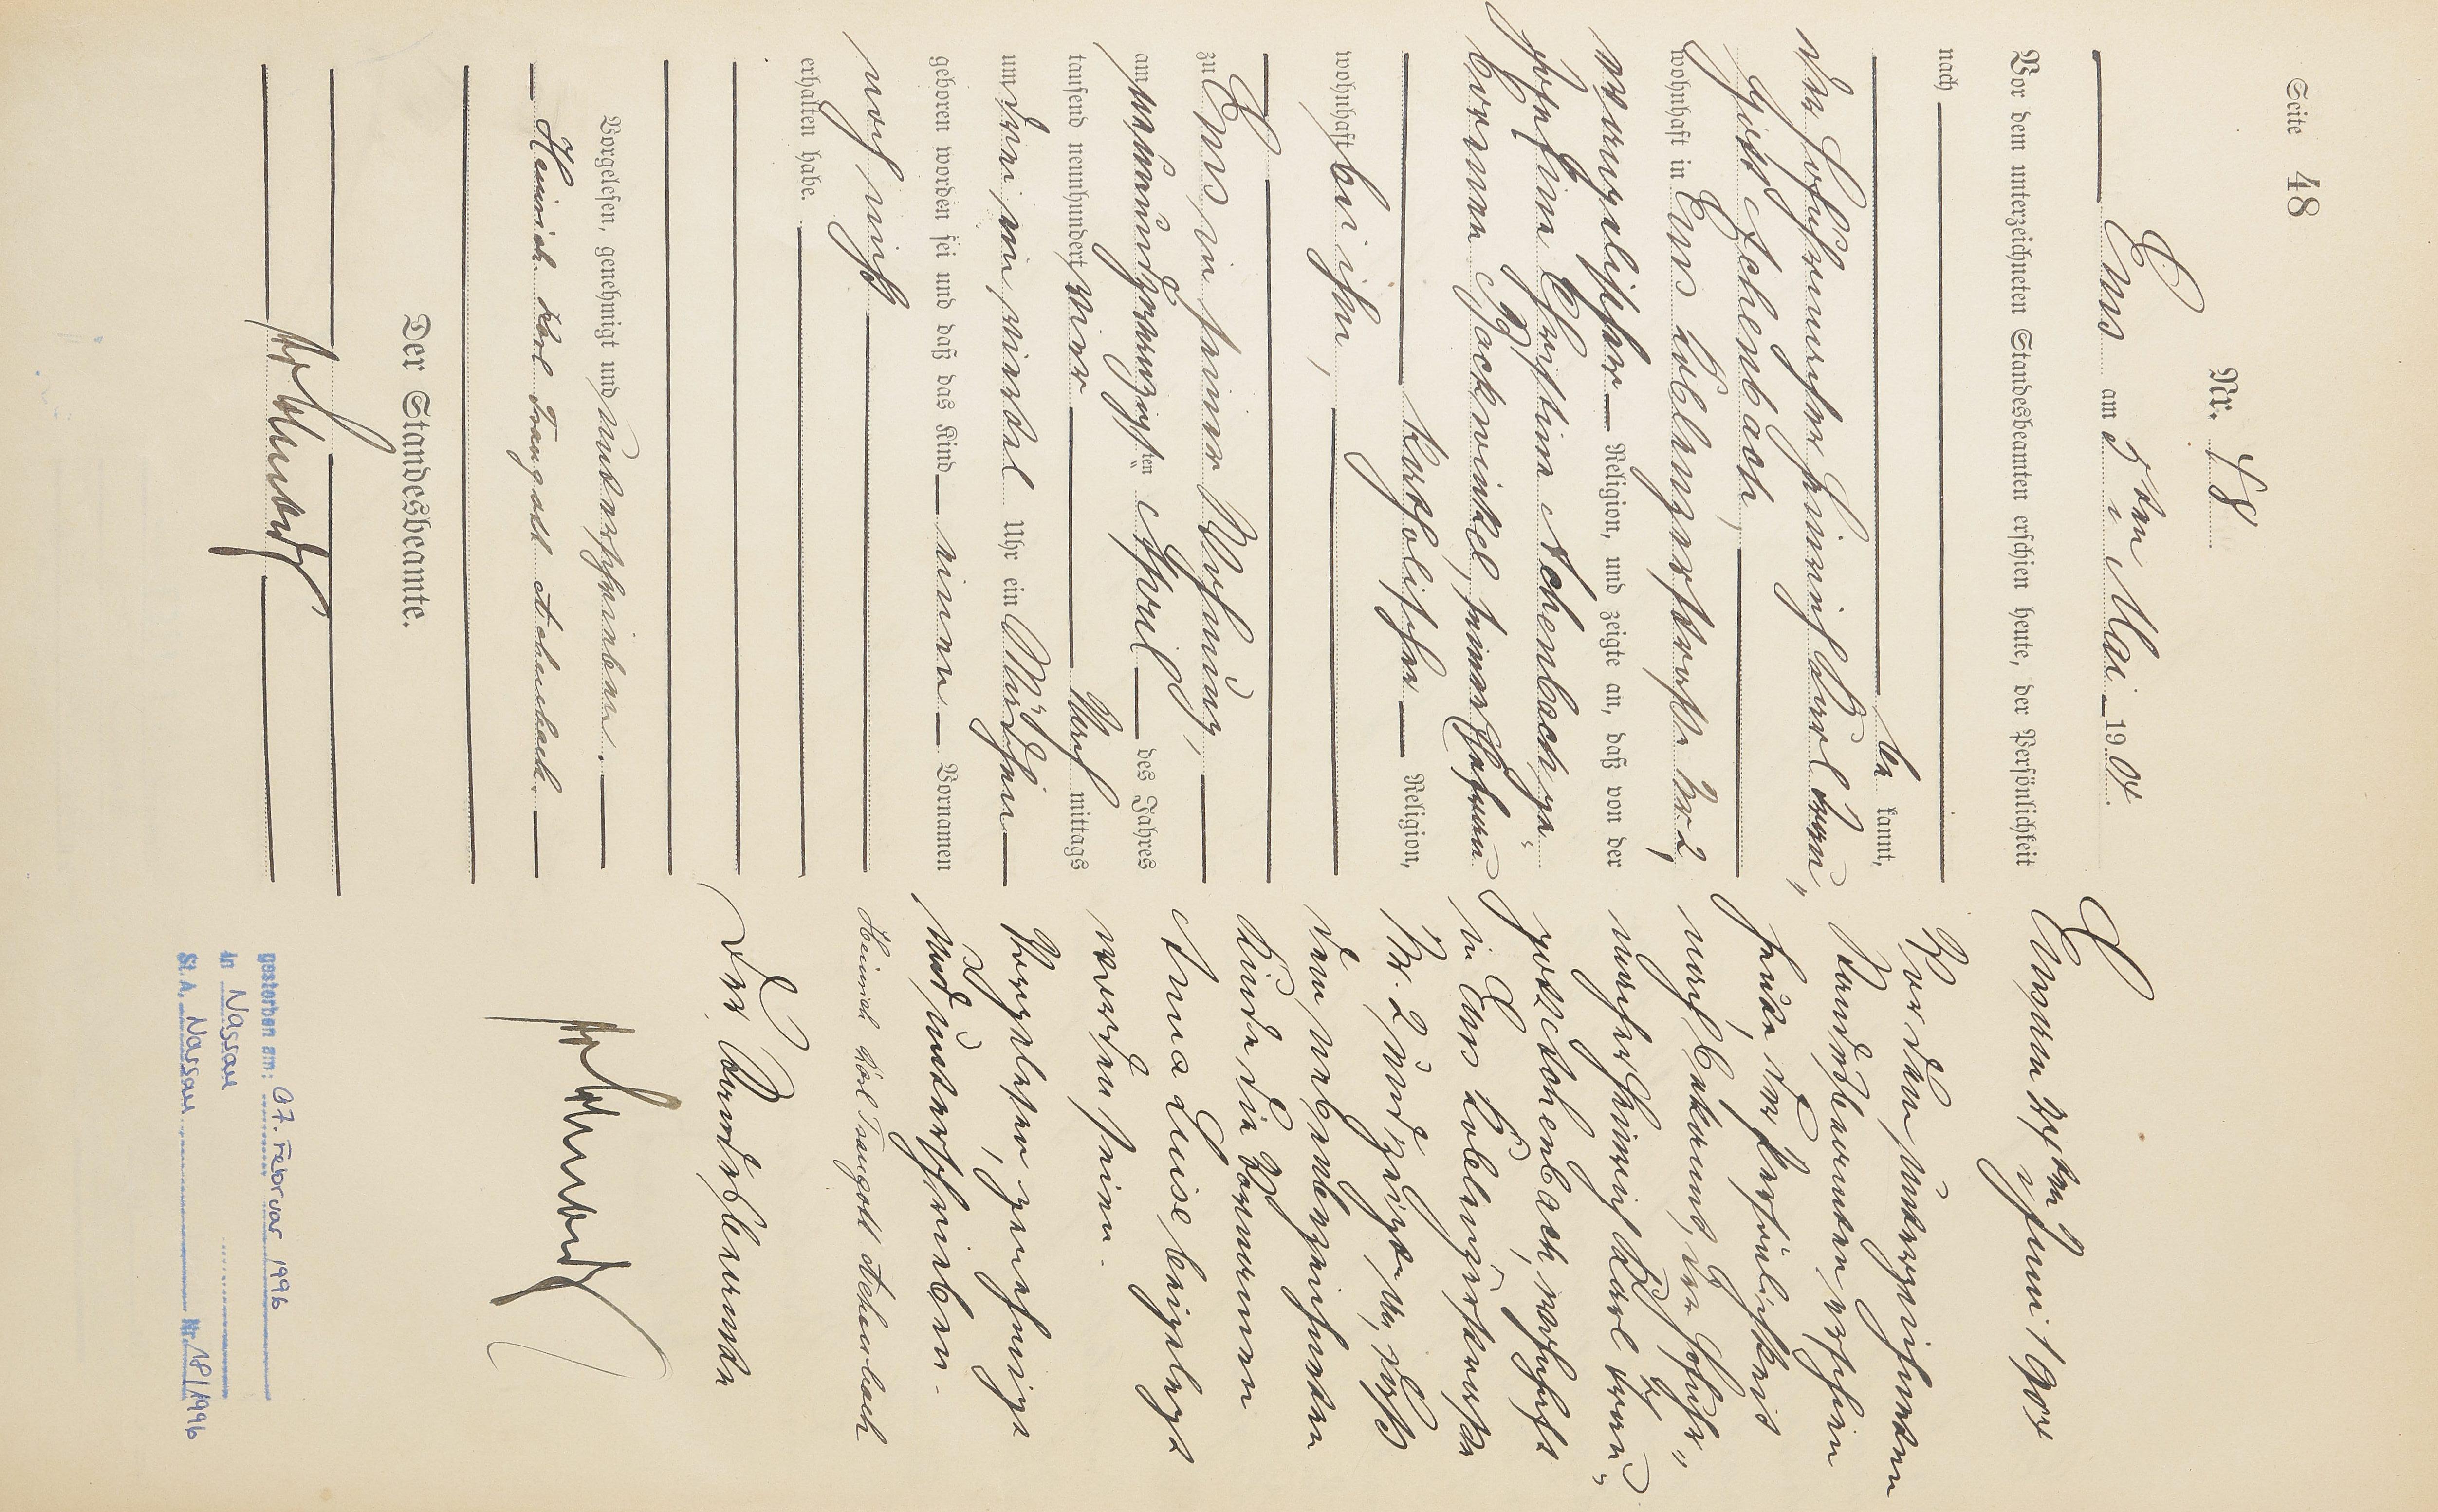 Seite 48
Nr. 48
Ems am 5ten Mai 1904.
Vor dem unterzeichneten Standesbeamten erschien heute, der Persönlichkeit
nach
be kannt,
der Schuhmacher Heinrich Karl Traugott Achenbach,
wohnhaft in Ems Koblenzerstraße Nr 2,
evangelischer Religion, und zeigte an, daß von der
Josefine Christine Achenbach ge-
borenen Wackwinkel, seiner Ehefrau
katholischer Religion,
wohnhaft bei ihm,
zu Ems in seiner Wohnung,
am neunundzwanzigsten April des Jahres
tausend neunhundert vier Nach mittags
um drei ein viertel Uhr ein Mädchen
geboren worden sei und daß das Kind einen Vornamen
noch nicht
erhalten habe.
Vorgelesen, genehmigt und unterschrieben.
Heinrich Karl Traugott Achenbach.
Der Standesbeamte.
Ems am Juni 1904
Vor dem unterzeichneten
Standesbeamten erschien
heute, der Persönlichkeit
nach bekannt, der Schuh"
macher Heinrich Karl Trau"
gott Achenbach, wohnhaft
in Ems Koblenzerstraße
Nr. 2, und zeigte an, daß
dem nebenbezeichneten
Kinde die Vornamen
Anna Luise beigelegt
worden seien.
Vorgelesen, genehmigt
und unterschrieben.
Heinrich Karl Traugott Achenbach
Der Standesbeamte
gestorben am: 07. Februar 1996
in Nassau
St. A. Nassau Nr. 18/1996